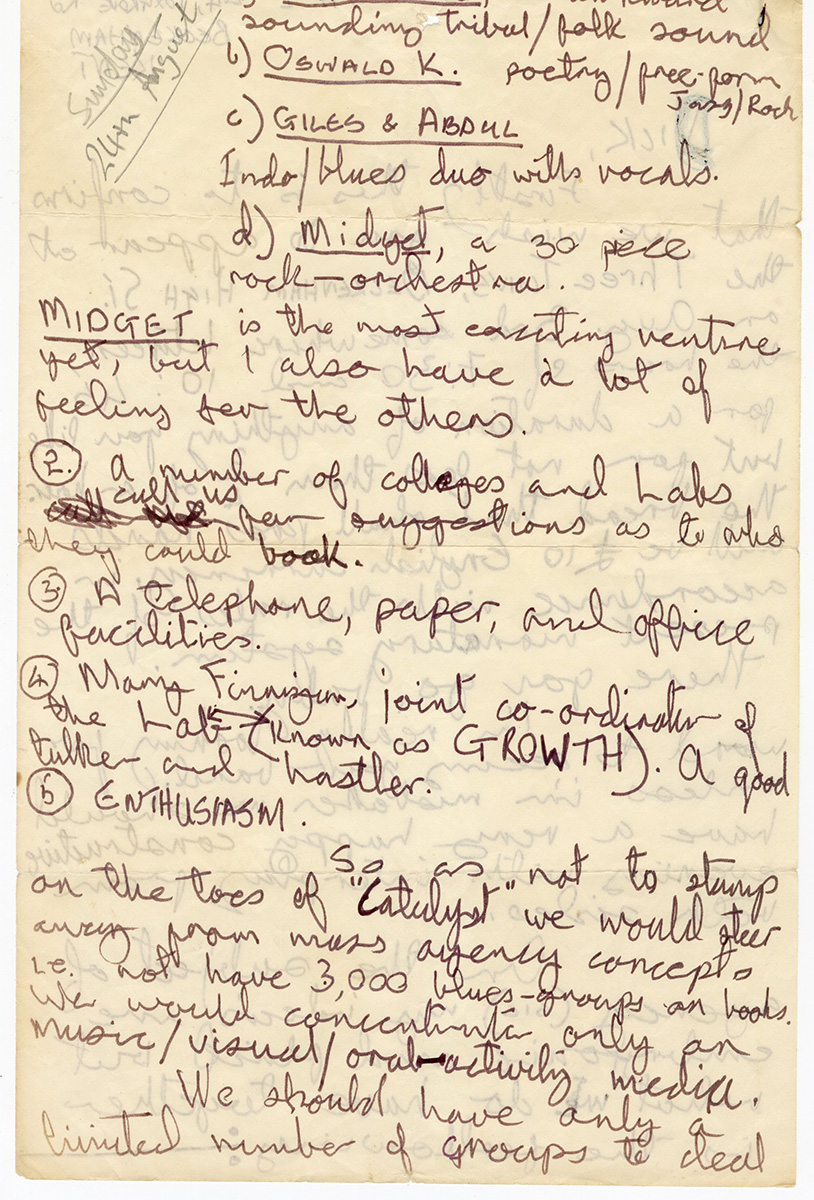 Sunday
24th August
sounding tribal/folk sound
b) OSWALD K. poetry/free-form
Jazz/Rock
c) GILES & ABDUL
Indo/blues duo with vocals.
d) Midget, a 30 piece
rock-orchestra.
MIDGET is the most exciting venture
yet, but I also have a lot of
feeling for the others.
2. A number of colleges and Labs
call us
for suggestions as to who
they could book.
3. A telephone, paper, and office
facilities.
4. Mary Finnigan, joint co-ordinator of
the Lab (known as GROWTH). A good
talker and hustler.
5 ENTHUSIASM.
So as not to stamp
on the toes of "Catalyst" we would steer
away from mass agency concepts
i.e. not have 3,000 blues-groups on books.
We would concentrate only on
music/visual/oral-activity media.
We should have only a
limited number of groups to deal